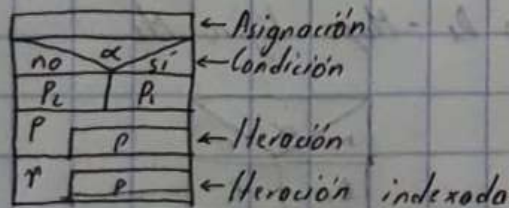 ← Asignación
no α sí ← Condición
P₂ P₁
P
P ← Iteración
γ P ← Iteración indexada